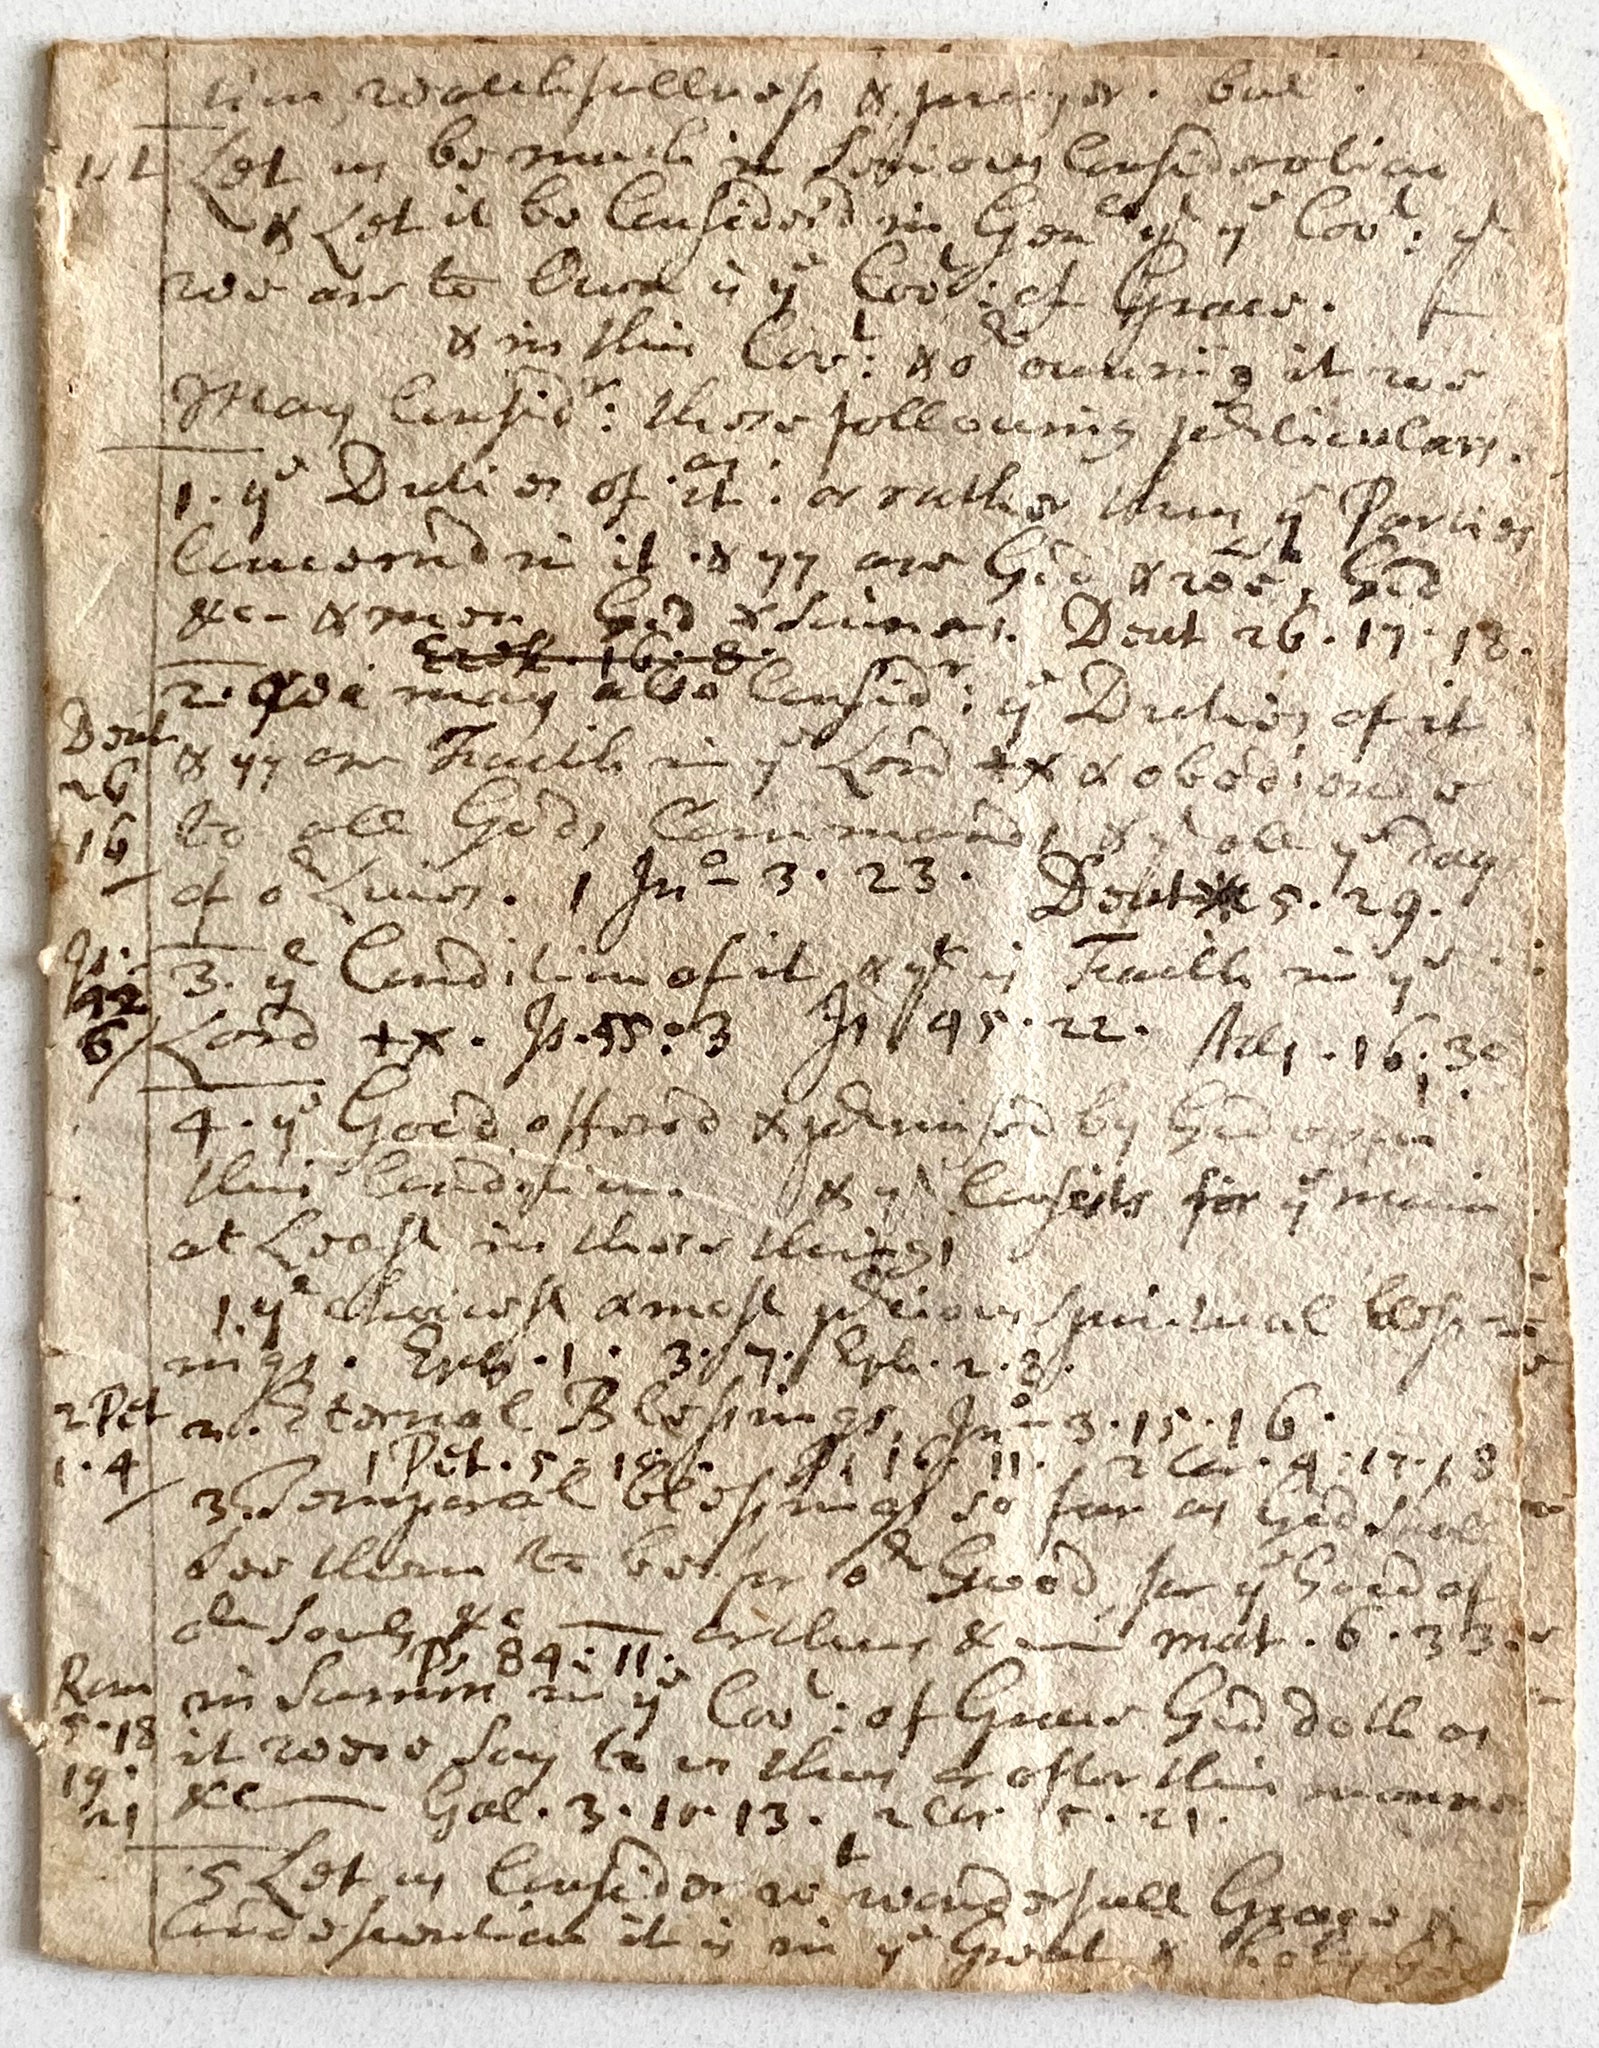 watchfullness & prayer. but
1st Let us be much in serious Consideration
& Let it be Considerd in Genll yt ye Covt: yt
wee are to Own is ye Covt: of Grace.
& in this Covt: & or owning it wee
May Considr: these following pticulars.
1. ye Duties of it: or rather thus ye Parties
Concernd in it. & yy are God & wee, God
&c- & men God & Sinners. Deut 26.17.18.
Ezek. 16.8.
2. Wee may also Considr: ye Duties of it
Deut
26
16
& yy are Faith in ye Lord & obedience
to all Gods Commands, & yt all ye days
of or Lives. 1 Jno 3.23. Deut 5.29.
Is.
42
6
3. ye Condition of it & yt is Faith in ye
Lord +x. Is.55:3 Is 45.22. Acts.16.30
4. ye Good offered & pmised by God upon
this Condition. & yt Consists for ye main
at Least in these things
1. ye choicest & most pcious spiritual bless
ings. Eph.1. 3.7. Eph.2.8.
2 Pet
1.4
2. Eternal Blessings, Jno 3.15.16.
1 Pet.5.10. Ps 16.11. 2 Cor.4:17.18
3. Temporal blessings so far as God shall
see them to be for or Good, for ye Good of
or Souls &c — or thus & — mat.6.33.
Ps 84:11.
Rom
5.18
19.
21
in Summ in ye Covt: of Grace God doth as
it were say to us thus or after this manner
&c — Gal.3.10.13. 2 Cor 5.21.
5 Let us Consider wt wonderfull Grace &
Condescention it is in ye Great & holy God